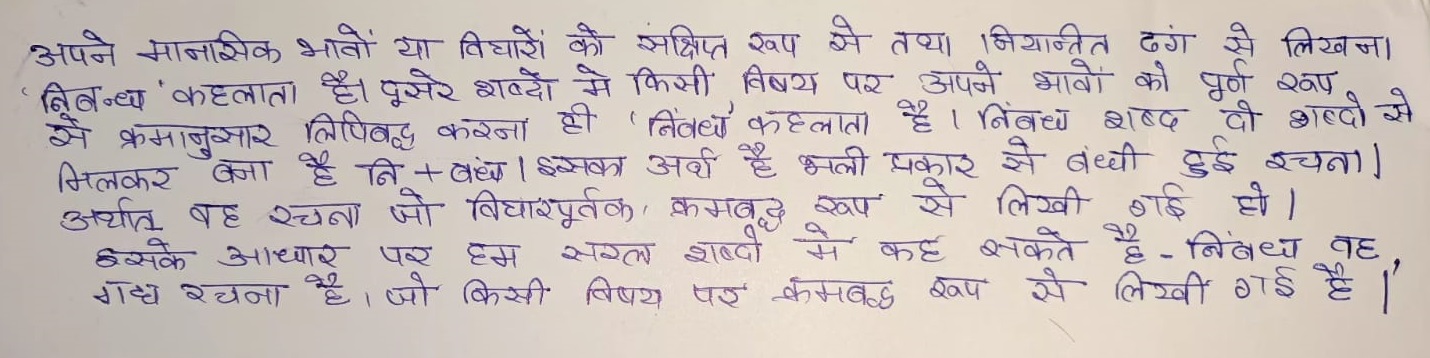 अपने मानासिक भावों या विचारों को संक्षिप्त रूप से तथा नियान्तित ढंग से लिखना
'निबन्ध' कहलाता है। दूसरे शब्दों मे किसी विषय पर अपने भावों को पूर्ण रूप
से क्रमानुसार लिपिबद्ध करना ही 'निंबध' कहलाता है। निंबध शब्द दो शब्दो से
मिलकर बना है नि + बंध। इसका अर्थ है भली प्रकार से बंधी हुई रचना।
अर्थात् वह रचना जो विचारपूर्तक, क्रमबद्ध रूप से लिखी गई हो।
इसके आधार पर हम सरल शब्दो मे कह सकते है - निंबध वह,
गद्य रचना है, जो किसी विषय पर क्रमबद्ध रूप से लिखी गई है।'